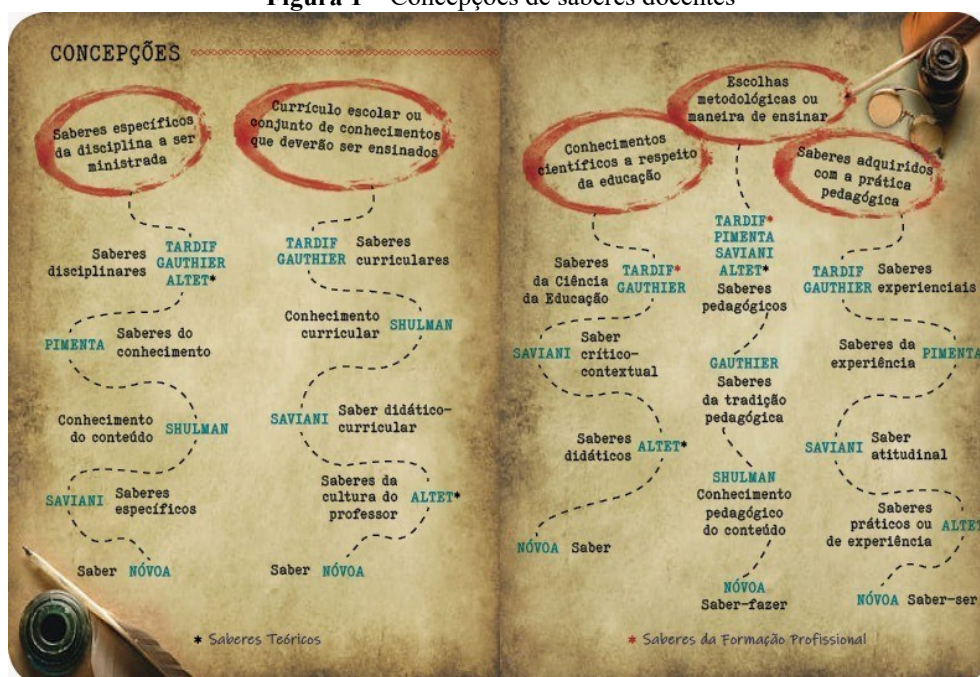 Figura 1 – Concepções de saberes docentes
CONCEPÇÕES
Saberes específicos
da disciplina a ser
ministrada
TARDIF
GAUTHIER
ALTET*
Saberes
disciplinares
PIMENTA
Saberes do
conhecimento
Conhecimento
do conteúdo
SHULMAN
SAVIANI
Saberes
específicos
Saber NÓVOA
Currículo escolar ou
conjunto de conhecimentos
que deverão ser ensinados
TARDIF
GAUTHIER
Saberes
curriculares
Conhecimento
curricular
SHULMAN
SAVIANI
Saber didático-
curricular
Saberes da
cultura do
professor
ALTET*
Saber NÓVOA
* Saberes Teóricos
Conhecimentos
científicos a respeito
da educação
Saberes
da Ciência
da Educação
TARDIF*
GAUTHIER
SAVIANI
Saber
crítico-
contextual
Saberes
didáticos
ALTET*
NÓVOA Saber
Escolhas
metodológicas ou
maneira de ensinar
TARDIF*
PIMENTA
SAVIANI
ALTET*
Saberes
pedagógicos
GAUTHIER
Saberes
da tradição
pedagógica
SHULMAN
Conhecimento
pedagógico
do conteúdo
NÓVOA
Saber-fazer
Saberes adquiridos
com a prática
pedagógica
TARDIF
GAUTHIER
Saberes
experienciais
Saberes da
experiência
PIMENTA
SAVIANI
Saber
atitudinal
Saberes
práticos ou
de experiência
ALTET
NÓVOA Saber-ser
* Saberes da Formação Profissional